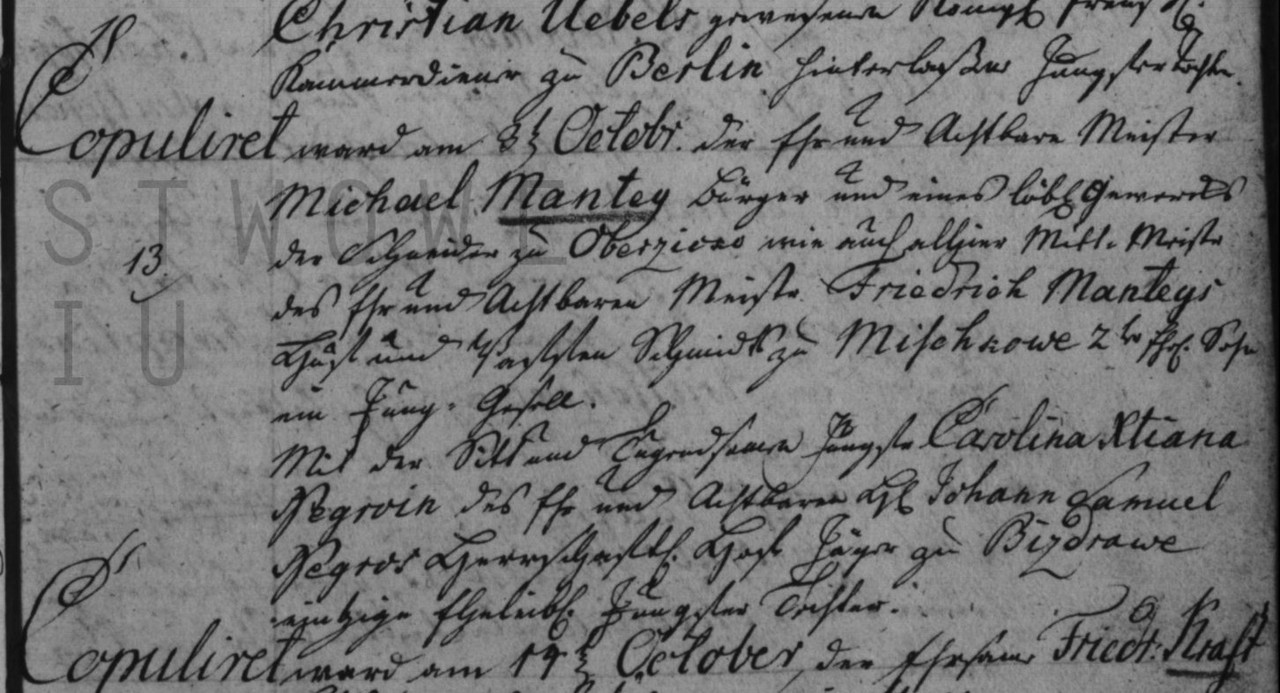 Christian Uebels gewesenen Königl Preuß
Kammerdiener zu Berlin hinterlaßne Jungfer Tochter.
Copuliret ward am 8t Octobr. der Ehr und Achtbare Meister
Michael Mantey Bürger und eines löbl Gewercks
13. der Schneider zu Oberzicko wie auch allhier Mitt- Meister
des Ehr und Achtbaren Meister Friedrich Manteys
Huf und Schmidts zu Mischkowe 2ter Ehel. Sohn
ein Jung-Gesell.
Mit der Sitt und Tugendsamen Jungfer Carolina Xtiana
des Ehr und Achtbaren H Johann Samuel
Herrschaftl. Jäger zu Bizdrowe
eintzige Eheleibl. Jungfer Tochter.
Copuliret ward am 19t October der Ehrsame Friedr: Kraft
STWOWE
IU